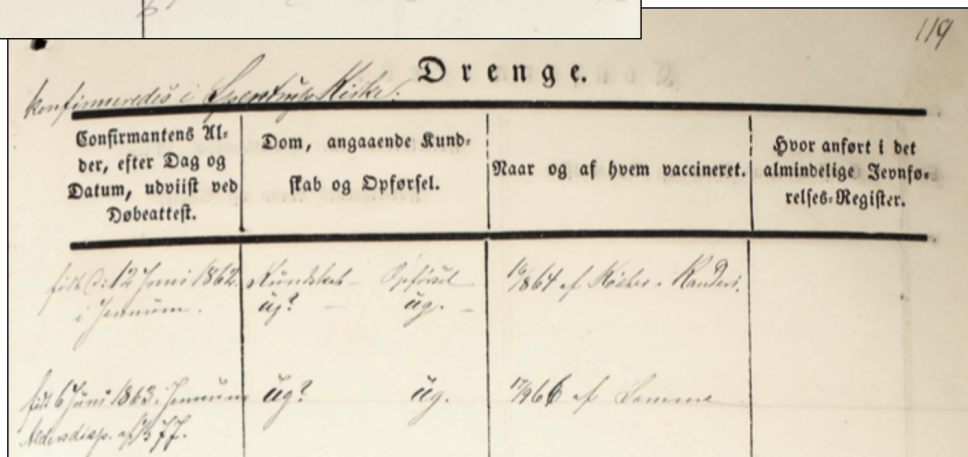 119
Drenge.
konfirmeredes i Spentrup Kirke.
Confirmantens Al-
der, efter Dag og
Datum, udviist ved
Døbeattest.
Dom, angaaende Kund-
skab og Opførsel.
Naar og af hvem vaccineret.
Hvor anført i det
almindelige Jevnfø-
relses-Register.
født d: 12 Juni 1862
i Jennum.
Kundskab - Opførsel
ug? - ug. -
1864 af Randers.
født 6 Juni 1863. Jennum
Aldersdisp. af 77.
ug? ug.
66 af